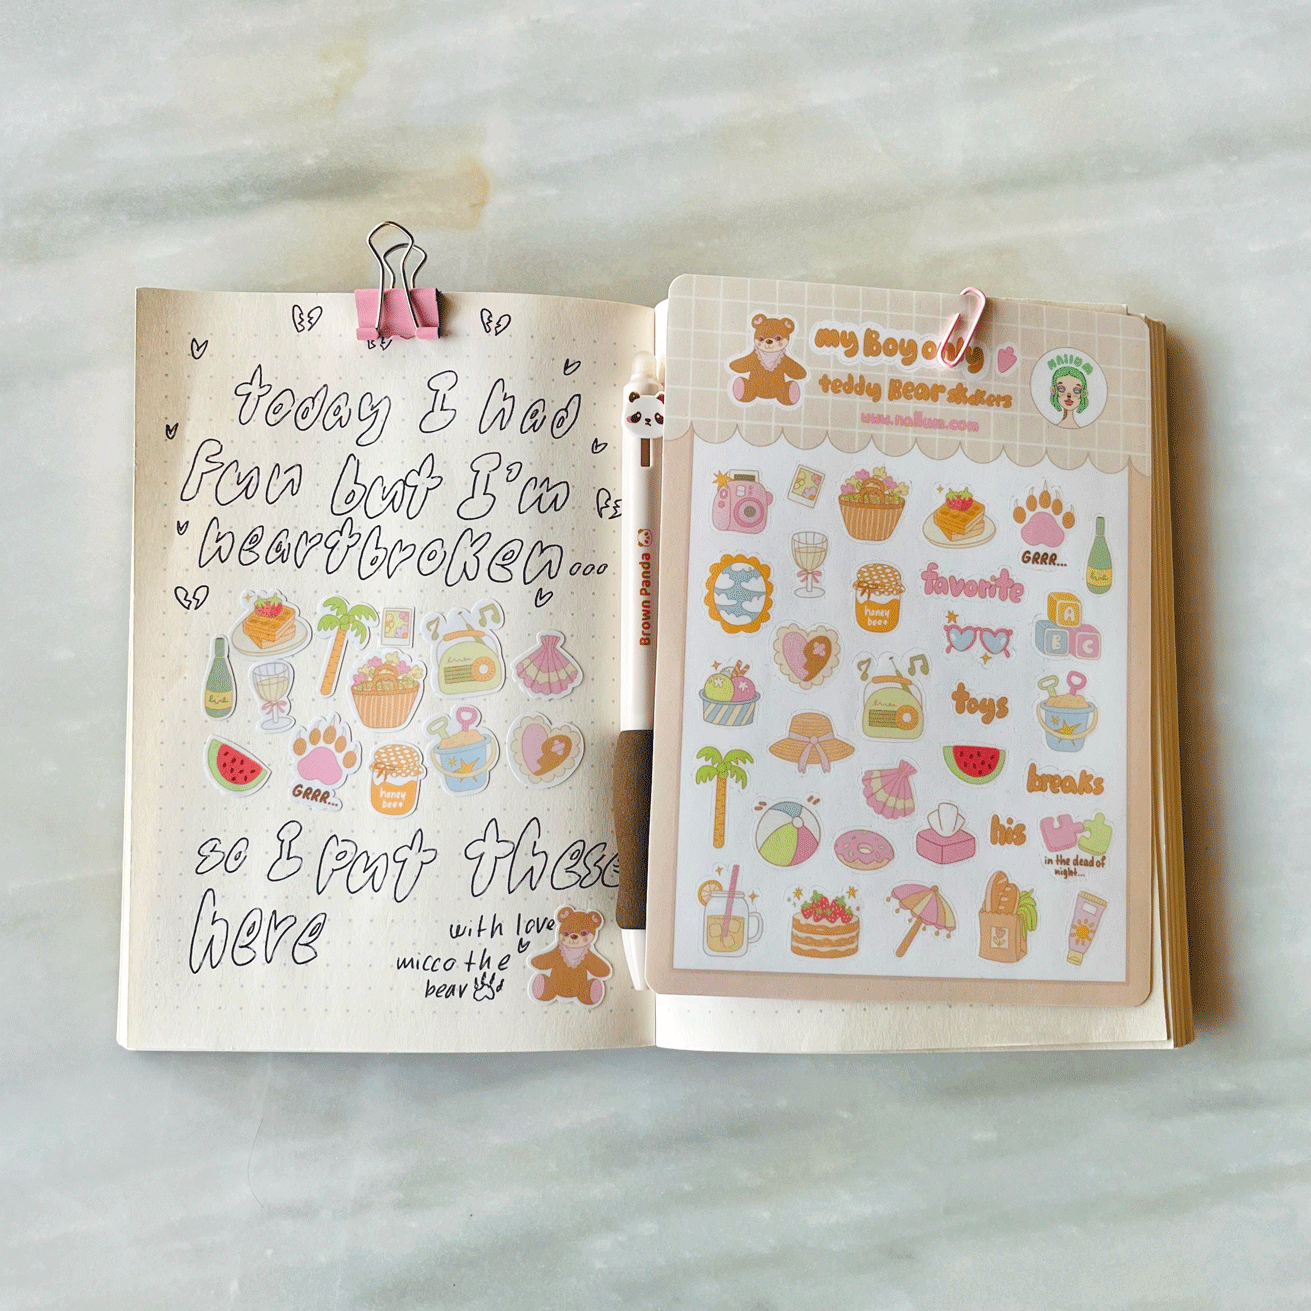 today I had
fun but I'm
heartbroken...
GRRR...
honey
bee
so I put these
here
with love
micco the
bear
Brown Panda
my Boy only
teddy Bear stickers
www.nallum.com
NALLUM
GRRR...
favorite
honey
bee
A
B C
toys
breaks
his
in the dead of
night...